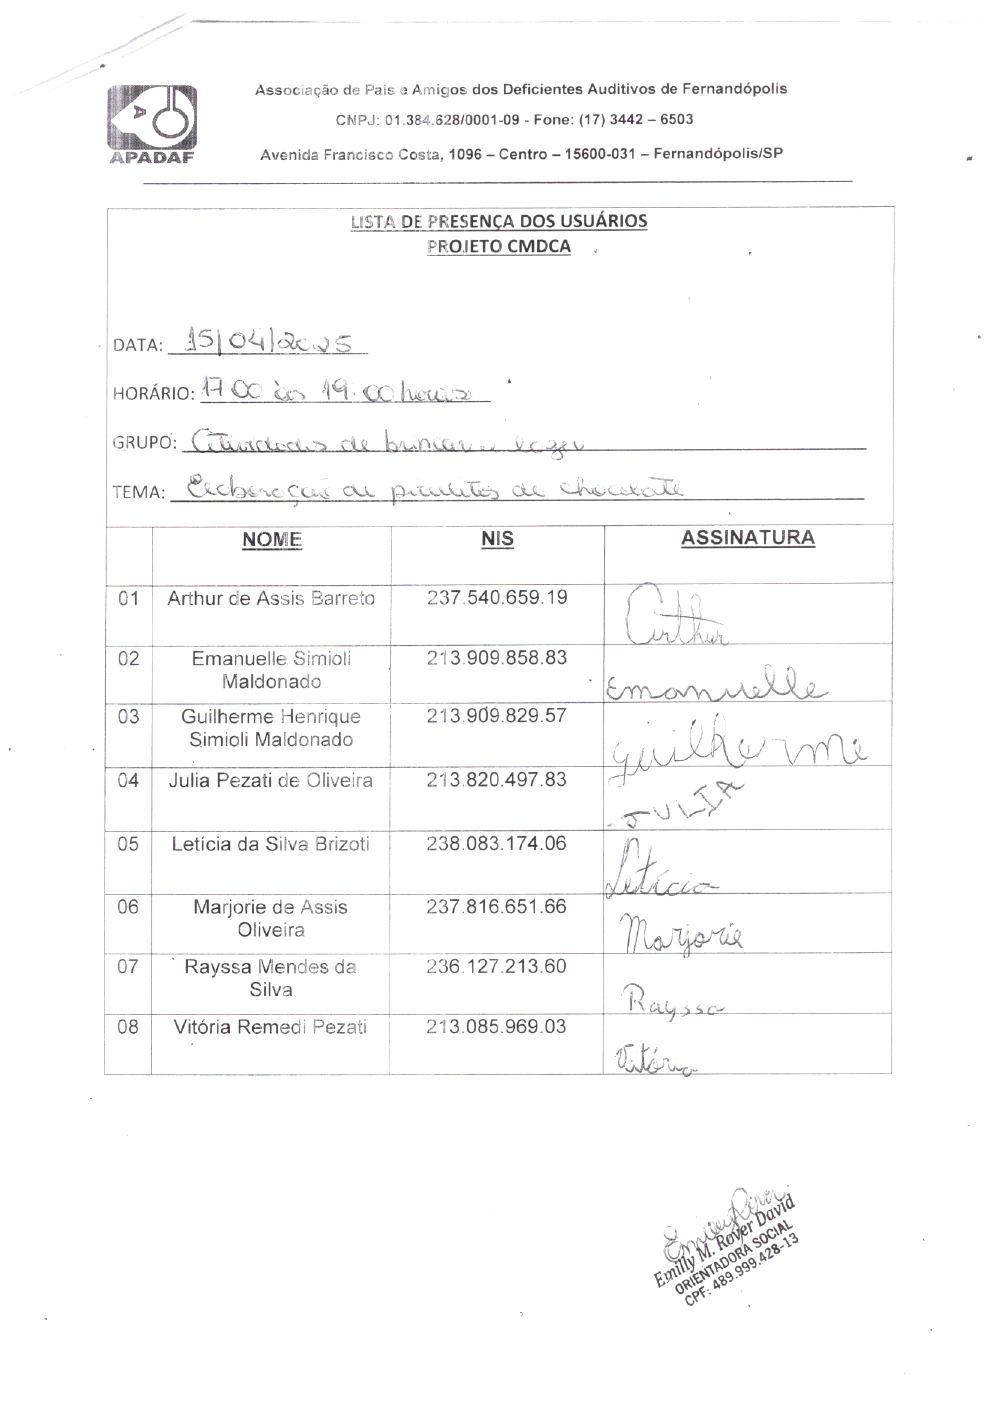 Associação de Pais e Amigos dos Deficientes Auditivos de Fernandópolis
CNPJ: 01.384.628/0001-09 - Fone: (17) 3442 – 6503
Avenida Francisco Costa, 1096 – Centro – 15600-031 – Fernandópolis/SP
APADAF
LISTA DE PRESENÇA DOS USUÁRIOS
PROJETO CMDCA
DATA: 15/04/2025
HORÁRIO: 17 00 às 19:00 horas
GRUPO: Atividades de brincar e lazer
TEMA: Elaboração de pirulitos de chocolate
NOME NIS ASSINATURA
01 Arthur de Assis Barreto 237.540.659.19 Arthur
02 Emanuelle Simioli 213.909.858.83
Maldonado Emanuelle
03 Guilherme Henrique 213.909.829.57
Simioli Maldonado Guilherme
04 Julia Pezati de Oliveira 213.820.497.83 JULIA
05 Letícia da Silva Brizoti 238.083.174.06 Letícia
06 Marjorie de Assis 237.816.651.66
Oliveira Marjorie
07 Rayssa Mendes da 236.127.213.60
Silva Rayssa
08 Vitória Remedi Pezati 213.085.969.03 Vitória
Emilly Rover
Emilly M. Rover David
ORIENTADORA SOCIAL
CPF: 489.999.428-13